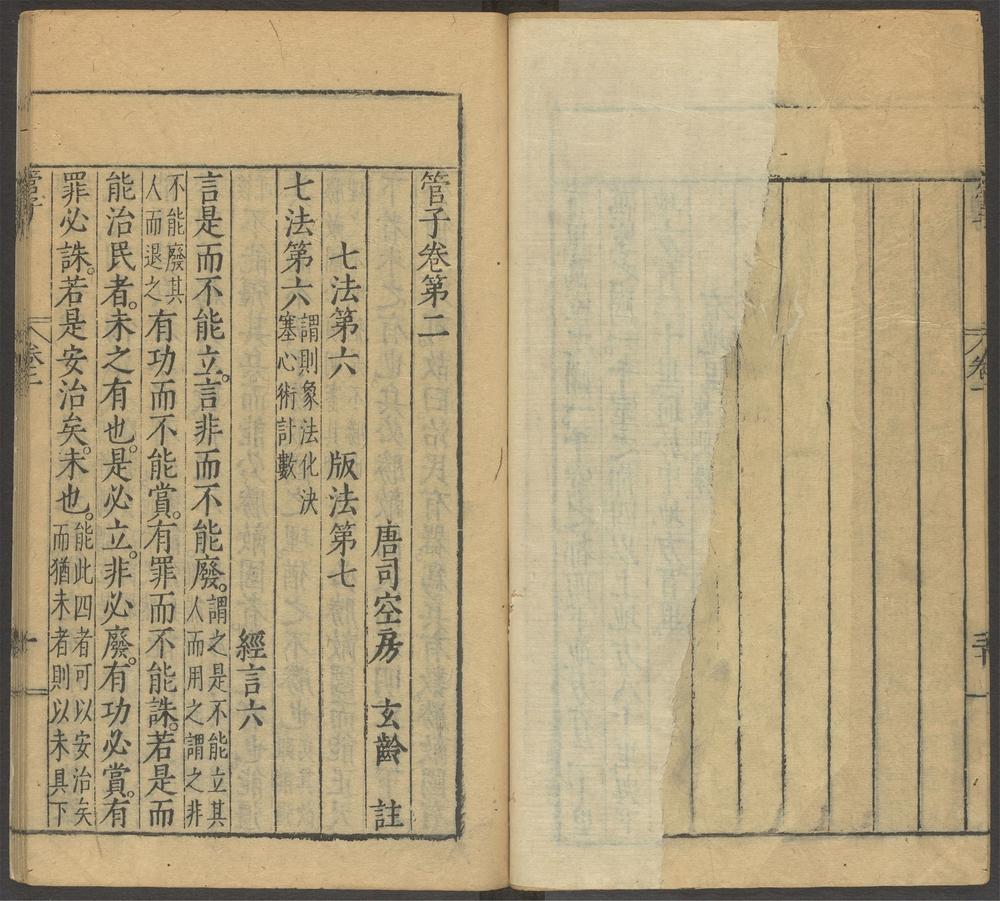 管子卷第二
唐司空房 玄齡 註
七法第六 版法第七
七法第六 謂則象法化決塞心術計數
經言六
言是而不能立。言非而不能廢。謂之是不能立其人而用之謂之非
不能廢其人而退之有功而不能賞。有罪而不能誅。若是而
能治民者。未之有也。是必立。非必廢。有功必賞。有
罪必誅。若是安治矣。未也。能此四者可以安治矣而猶未者則以未具下